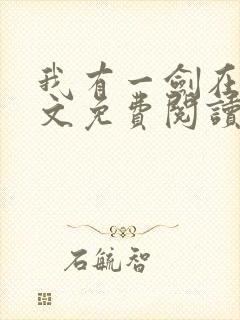 我有一劍在
文免費閱讀
石毓智